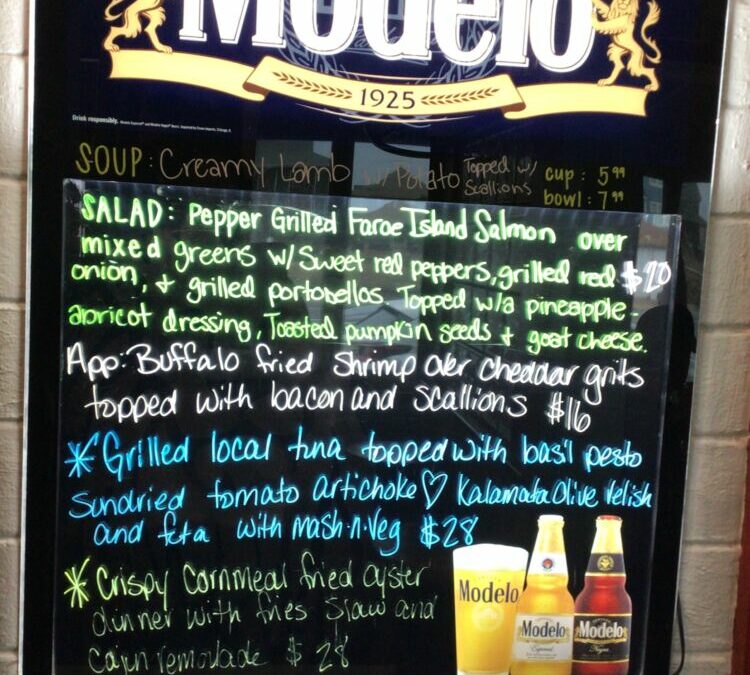 Modelo
1925
Drink responsibly.
SOUP: Creamy Lamb w/ Potato Topped w/ Scallions cup: 5.99
bowl: 7.99
SALAD: Pepper Grilled Faroe Island Salmon over
mixed greens w/ Sweet red peppers, grilled red $20
onion, + grilled portobellos. Topped w/a pineapple-
apricot dressing, Toasted pumpkin seeds + goat cheese.
App: Buffalo fried Shrimp over cheddar grits
topped with bacon and Scallions $16
* Grilled local tuna topped with basil pesto
Sundried tomato artichoke ♡ Kalamata Olive relish
and feta with mash-n-veg $28
* Crispy Cornmeal fried oyster
dinner with fries Slaw and
Cajun remoulade $28
Modelo
Modelo
Especial
Modelo
Negra